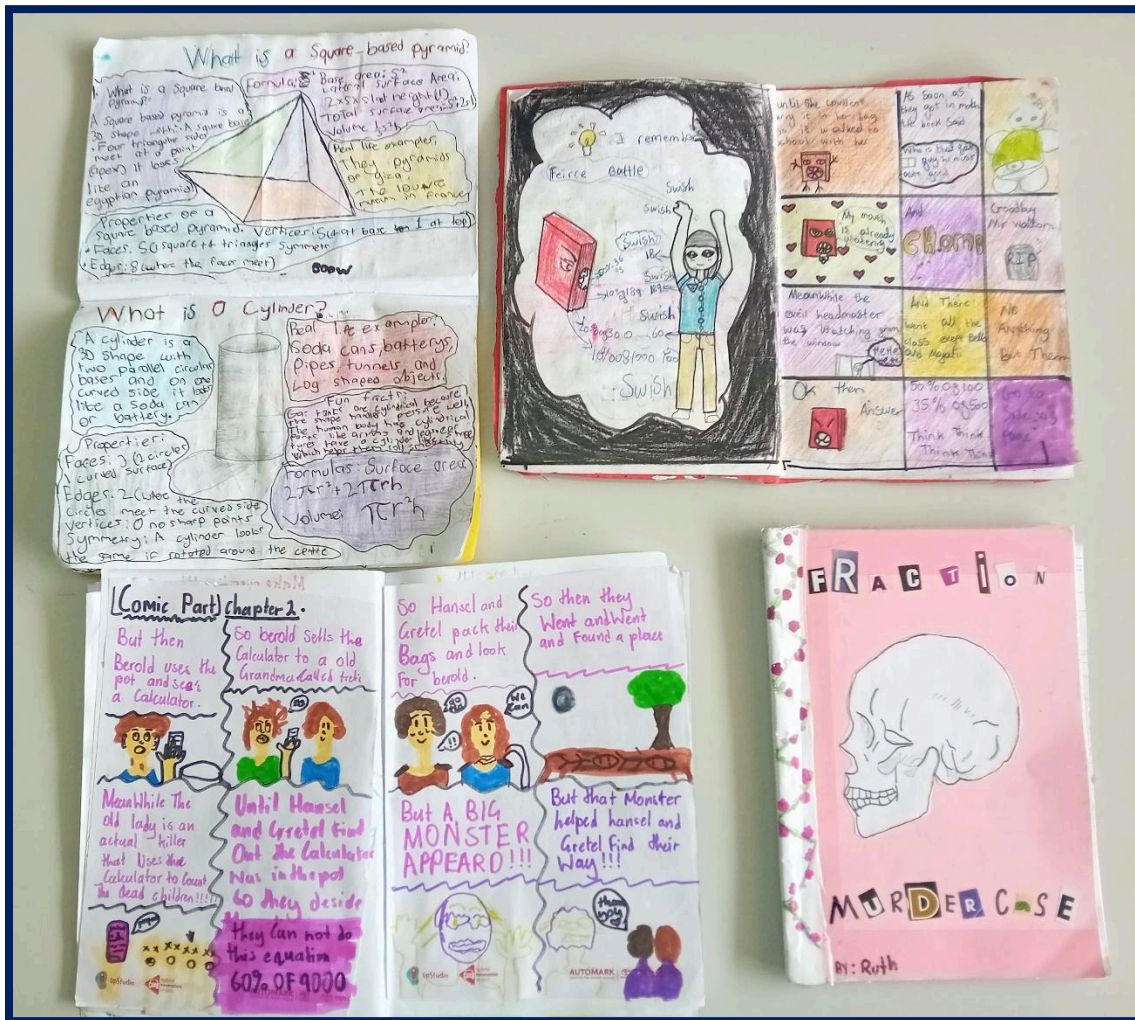 What is a Square-based pyramid?
1. What is a Square based
pyramid?
A square based pyramid is a
3D shape with: A square base
Four triangular sides
meet at a point
(apex) it looks
like an
egyptian pyramid
Base area: S²
Lateral surface Area:
2×S×slant height(l)
Total surface area:
Real life examples:
They pyramids
of giza,
The louvre
museum in France
Properties of a
square based pyramid.
Vertices: 5 (4 at base 1 at top)
Edges: 8 (where the faces meet)
What is a Cylinder?
A cylinder is a
3D shape with
two parallel circular
bases and on one
curved side it looks
like a soda can
or battery.
Real life examples:
Soda cans, batterys,
Pipes, tunnels, and
Log shaped objects.
Fun facts:
Gas tanks are cylindrical because
the shape handles pressure well
The human body has cylindrical
parts like arms and legs
tires have a cylinder
which helps them roll smoothly
Properties:
Faces: 3 (2 circles
1 curved surface)
Edges: 2 (where the
circles meet the curved side
Vertices: 0 no sharp points
Symmetry: A cylinder looks
the same if rotated around the centre
Formulas: Surface area:
2πr²+2πrh
Volume: πr²h
I remember
Feirce battle
Swish
Swish
Swish
Swish
Swish
Swish
until she couldent
school with her
As soon as
they got in math
the book said
My mouth
is already
watering
And
CHOMP
Goodby
Mr walton
RIP
Meanwhile the
evil headmaster
was watching from
the window
And There
went all the
class exept bella
and
No
Anything
but Them
Ok then
Answer
50% of 100
35% of 500
Think Think
Think Think
[Comic Part] Chapter 2.
But then
Berold uses the
pot and sees
a Calculator.
So berold sells the
Calculator to a old
Grandma called
MeanWhile The
old lady is an
actual killer
that Uses the
Calculator to Count
The dead children!!!!
Until Hansel
and Gretel Find
Out the Calculator
Was in the pot
So they deside
they Can not do
this equation
60% OF 9000
So Hansel and
Gretel pack their
Bags and look
For berold.
We
Can
But A BIG
MONSTER
APPEARD!!!
So then they
Went and Went
and Found a place
But that Monster
helped hansel and
Gretel Find their
Way!!!
thank
you
upStudio
AUTOMARK
FRACTION
MURDER CASE
BY: Ruth